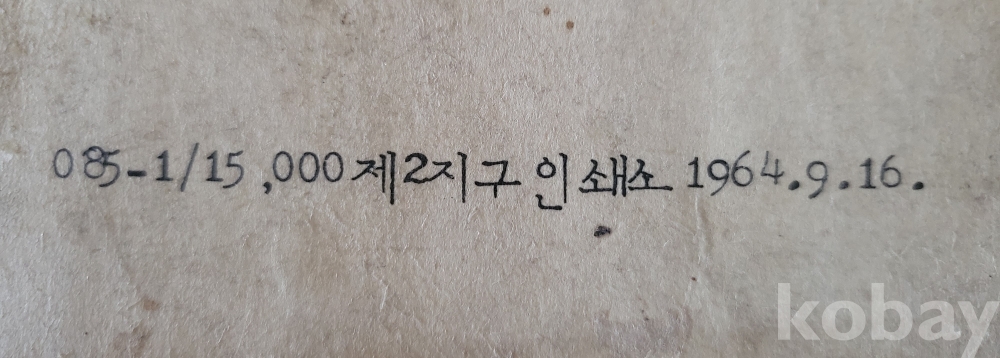 085-1/15,000 제2지구 인쇄소 1964.9.16.
kobay